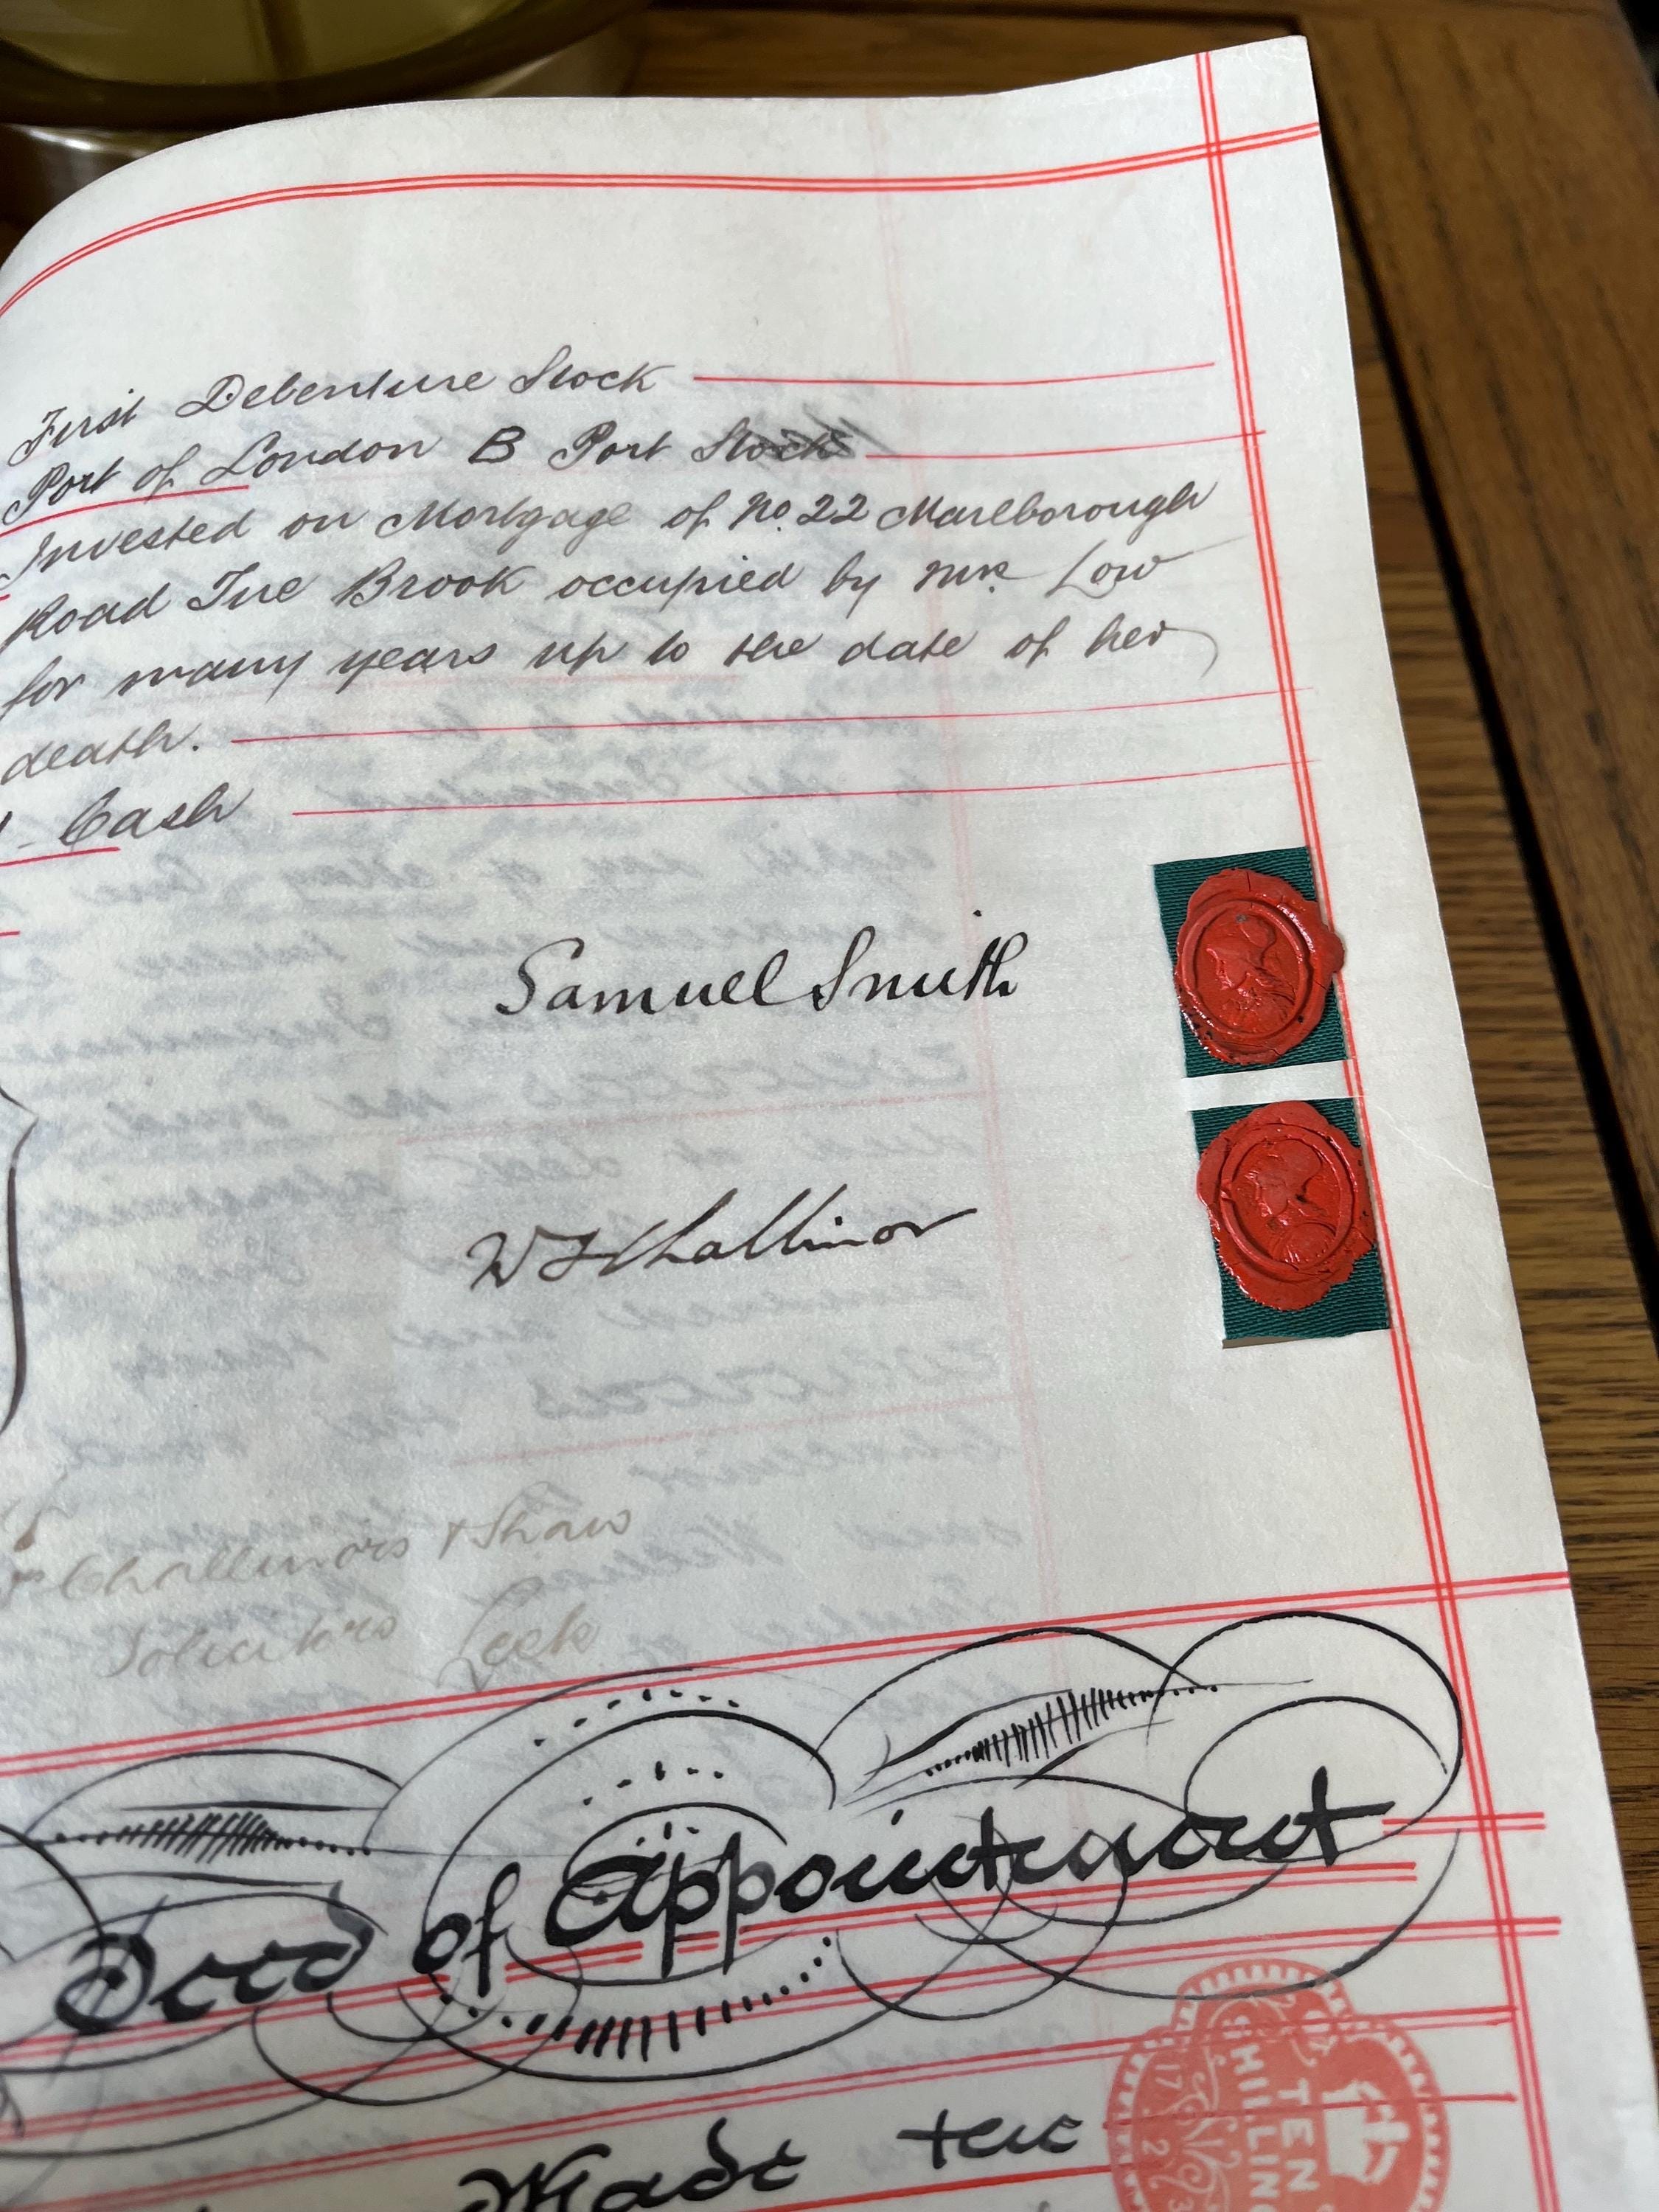 First Debenture Stock
Port of London B Port Stock
Invested on Mortgage of No. 22 Marlborough
Road Tue Brook occupied by Mrs. Low
for many years up to the date of her
death.
Cash
Samuel Smith
W F Challinor
Challinors & Shaw
Solicitors Leek
Deed of Appointment
Made the
TEN
SHILLING